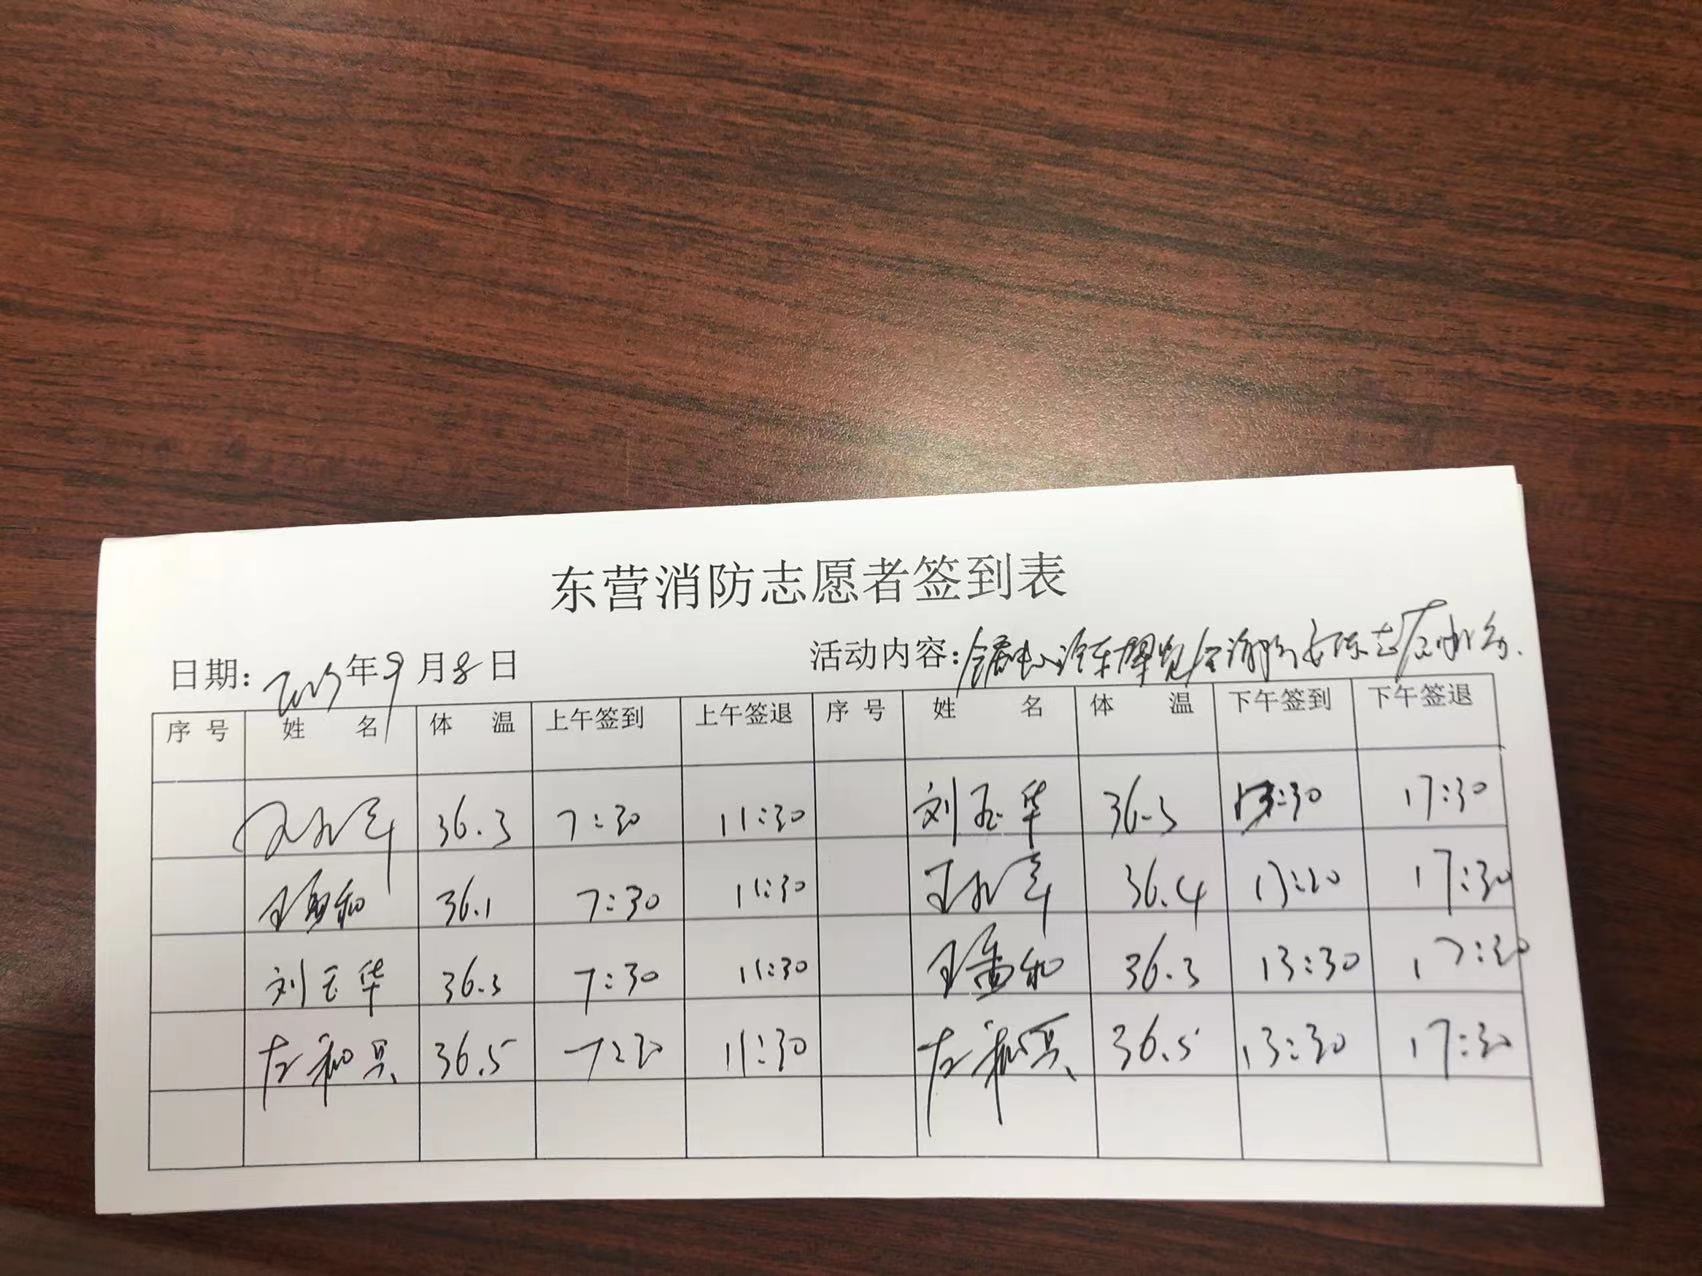 东营消防志愿者签到表
日期: 年9月8日 活动内容: 会展中心汽车博览会消防安保志愿服务.
序号 姓名 体温 上午签到 上午签退 序号 姓名 体温 下午签到 下午签退
36.3 7:30 11:30 刘玉华 36.3 13:30 17:30
王孟和 36.1 7:30 11:30 36.4 13:30 17:30
刘玉华 36.3 7:30 11:30 王孟和 36.3 13:30 17:30
左和兴 36.5 7:30 11:30 左和兴 36.5 13:30 17:30